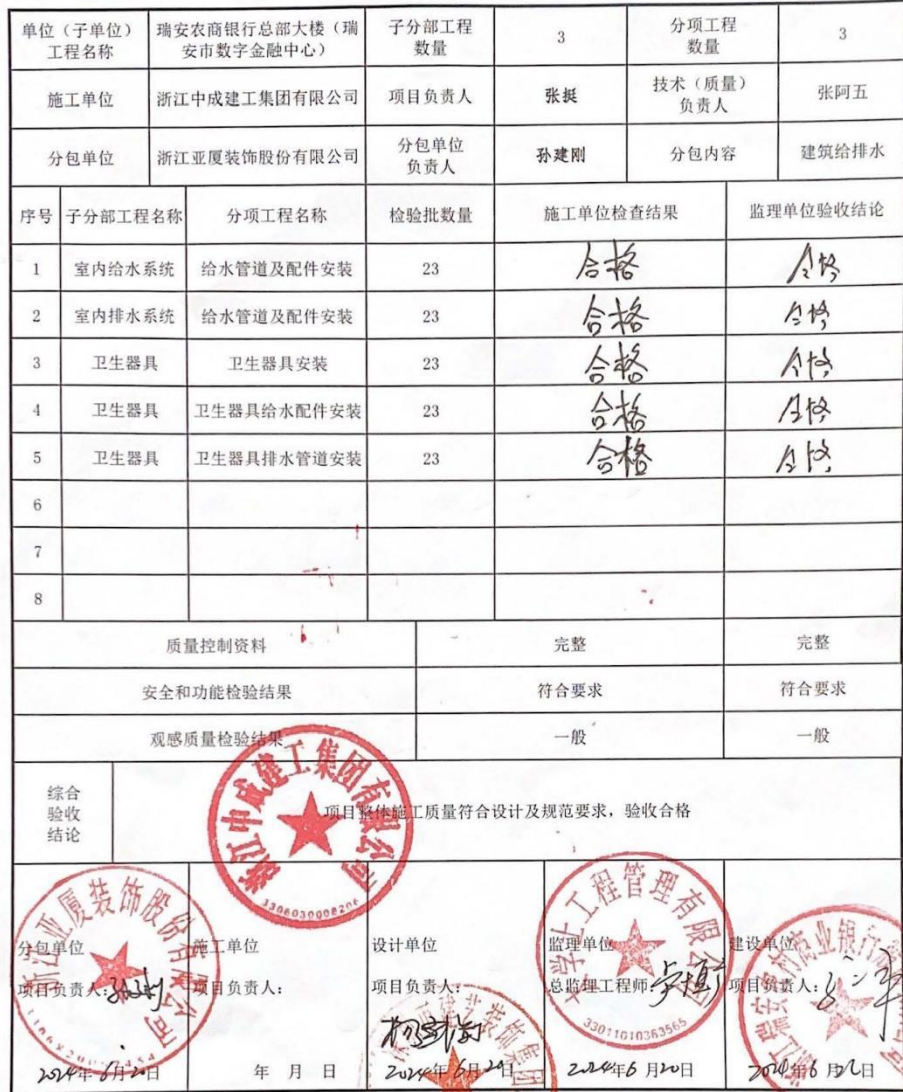 单位（子单位）工程名称 瑞安农商银行总部大楼（瑞安市数字金融中心） 子分部工程数量 3 分项工程数量 3
施工单位 浙江中成建工集团有限公司 项目负责人 张挺 技术（质量）负责人 张阿五
分包单位 浙江亚厦装饰股份有限公司 分包单位负责人 孙建刚 分包内容 建筑给排水
序号 子分部工程名称 分项工程名称 检验批数量 施工单位检查结果 监理单位验收结论
1 室内给水系统 给水管道及配件安装 23 合格 合格
2 室内排水系统 给水管道及配件安装 23 合格 合格
3 卫生器具 卫生器具安装 23 合格 合格
4 卫生器具 卫生器具给水配件安装 23 合格 合格
5 卫生器具 卫生器具排水管道安装 23 合格 合格
6
7
8
质量控制资料 完整 完整
安全和功能检验结果 符合要求 符合要求
观感质量检验结果 一般 一般
综合验收结论 项目整体施工质量符合设计及规范要求，验收合格
浙江中成建工集团有限公司
3306030008206
浙江亚厦装饰股份有限公司
工程管理有限公司
33011010363565
分包单位 施工单位 设计单位 监理单位 建设单位
项目负责人： 项目负责人： 项目负责人： 总监理工程师： 项目负责人：
2024年6月20日 年 月 日 2024年6月20日 2024年6月20日 2024年6月日